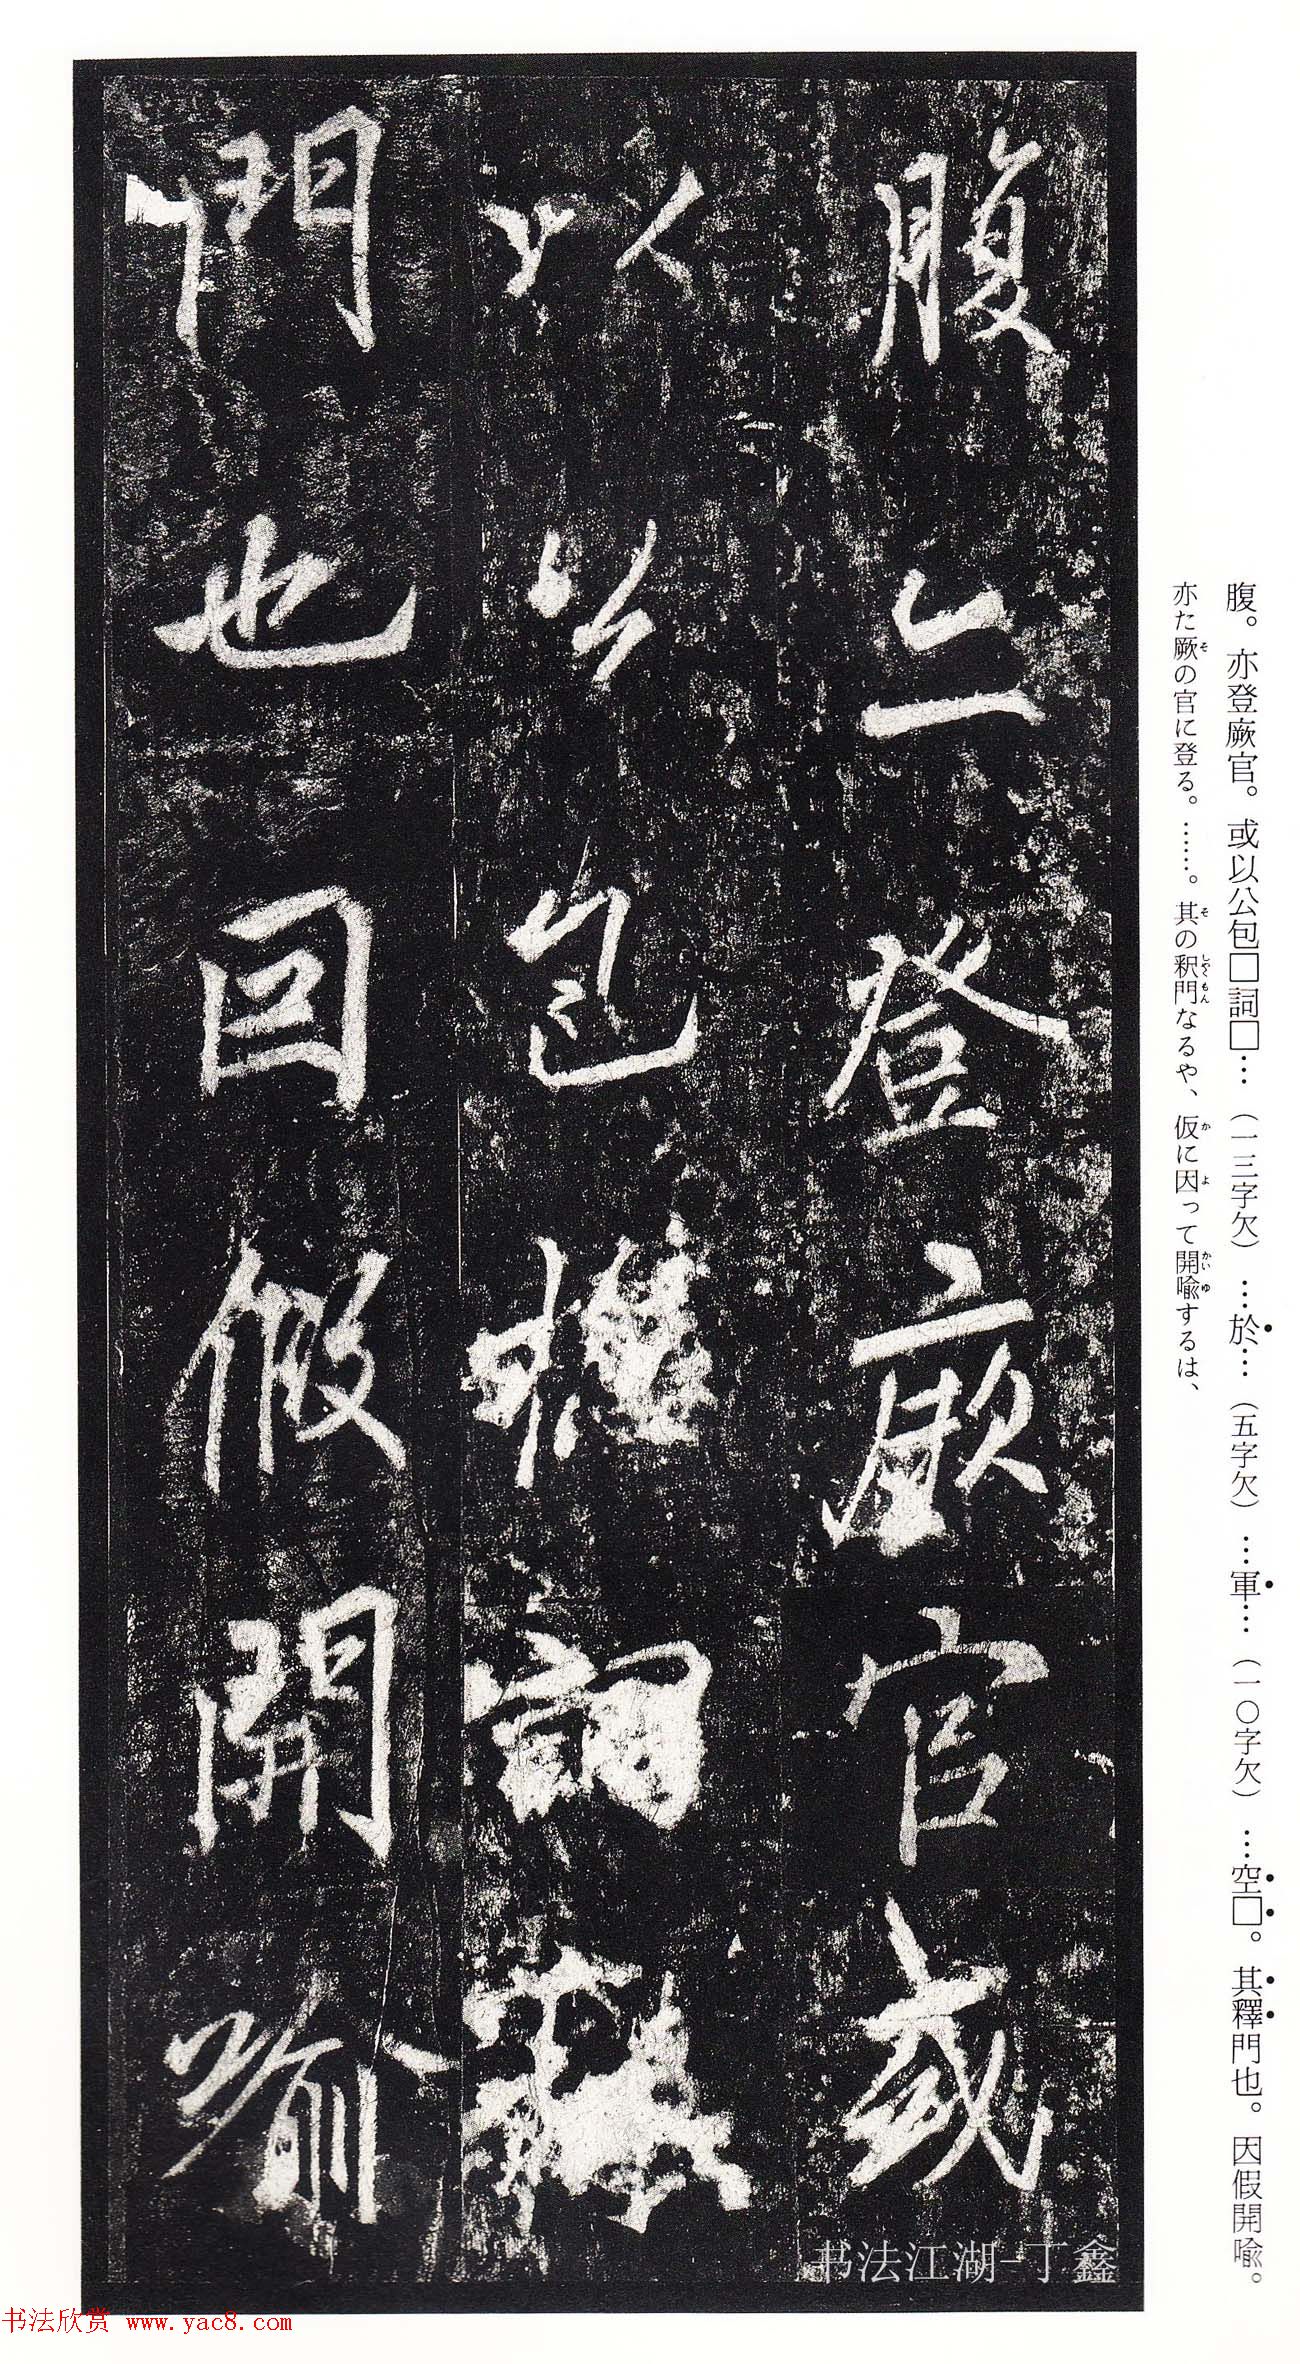 腹。亦登厥官。或以公包□詞□…（一三字欠）…於…（五字欠）…軍…（一〇字欠）…空□。其釋門也。因假開喩。
亦た厥の官に登る。……。其の釈門なるや、仮に因って開喩するは、
腹亦登厥官或
以公包詞
門也因假開喻
书法江湖-丁鑫
书法欣赏 www.yac8.com